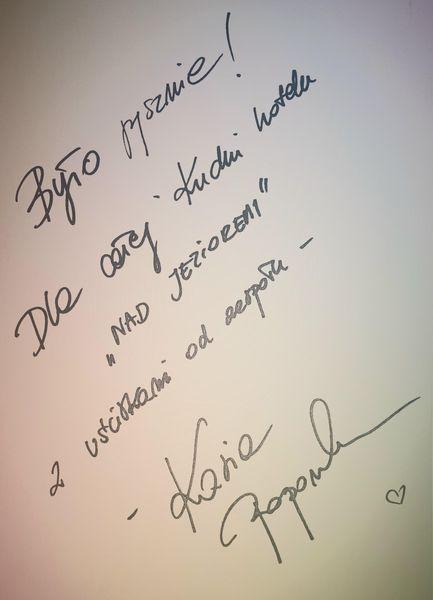 Było pysznie!
Dla całej Kuchni hotelu
„NAD JEZIOREM"
z uściskami od zespołu -
- Kasia